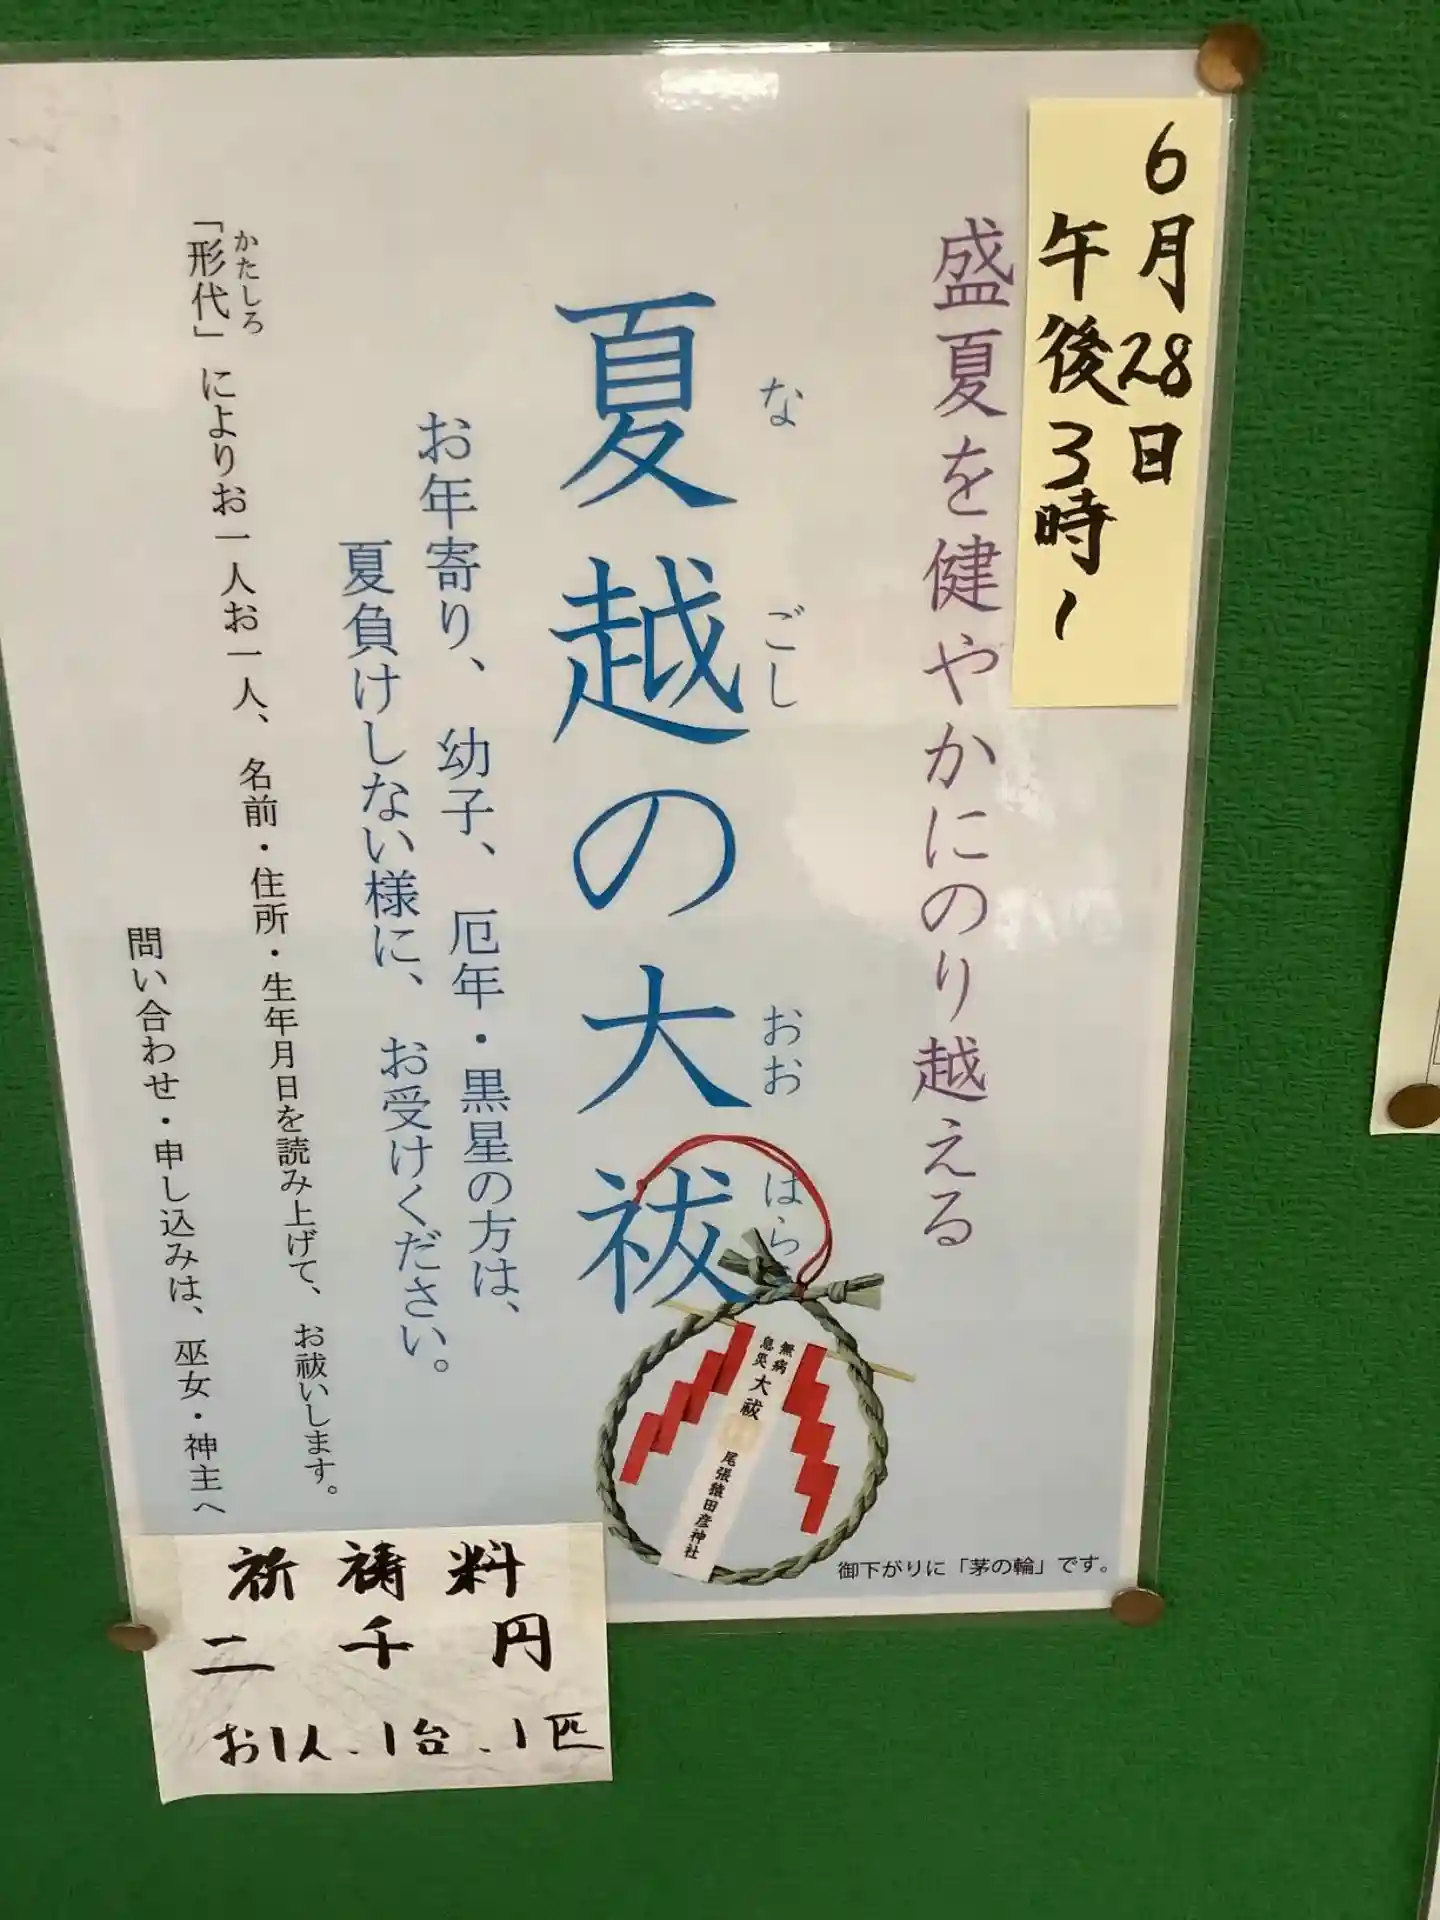 6月28日
午後3時〜
盛夏を健やかにのり越える
なごし おおはら
夏越の大祓
お年寄り、幼子、厄年・黒星の方は、
夏負けしない様に、お受けください。
かたしろ
「形代」によりお一人お一人、名前・住所・生年月日を読み上げて、お祓いします。
問い合わせ・申し込みは、巫女・神主へ
無病
息災
大祓
尾張猿田彦神社
御下がりに「茅の輪」です。
祈祷料
二千円
お1人、1台、1匹